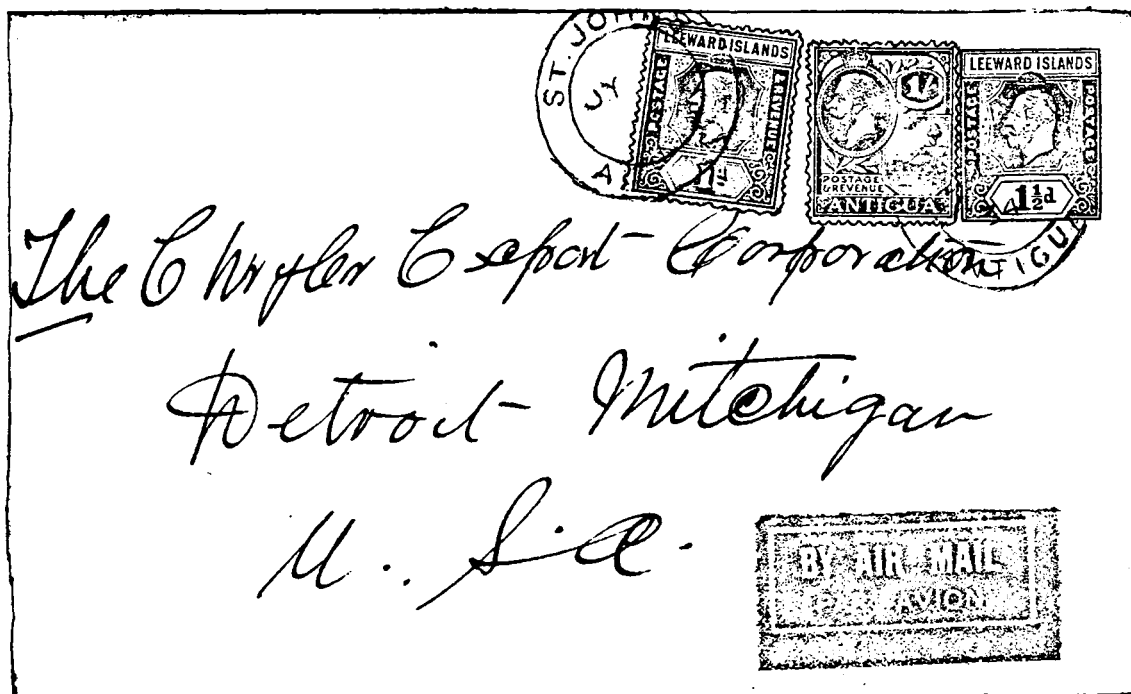 ST. JOHN
JY
A
LEEWARD ISLANDS
POSTAGE
& REVENUE
1/-
POSTAGE
& REVENUE
ANTIGUA
LEEWARD ISLANDS
POSTAGE
POSTAGE
1½d
ANTIGU
The Chrysler Export Corporation
Detroit Mitchigan
U. S. A.
BY AIR MAIL
PAR AVION